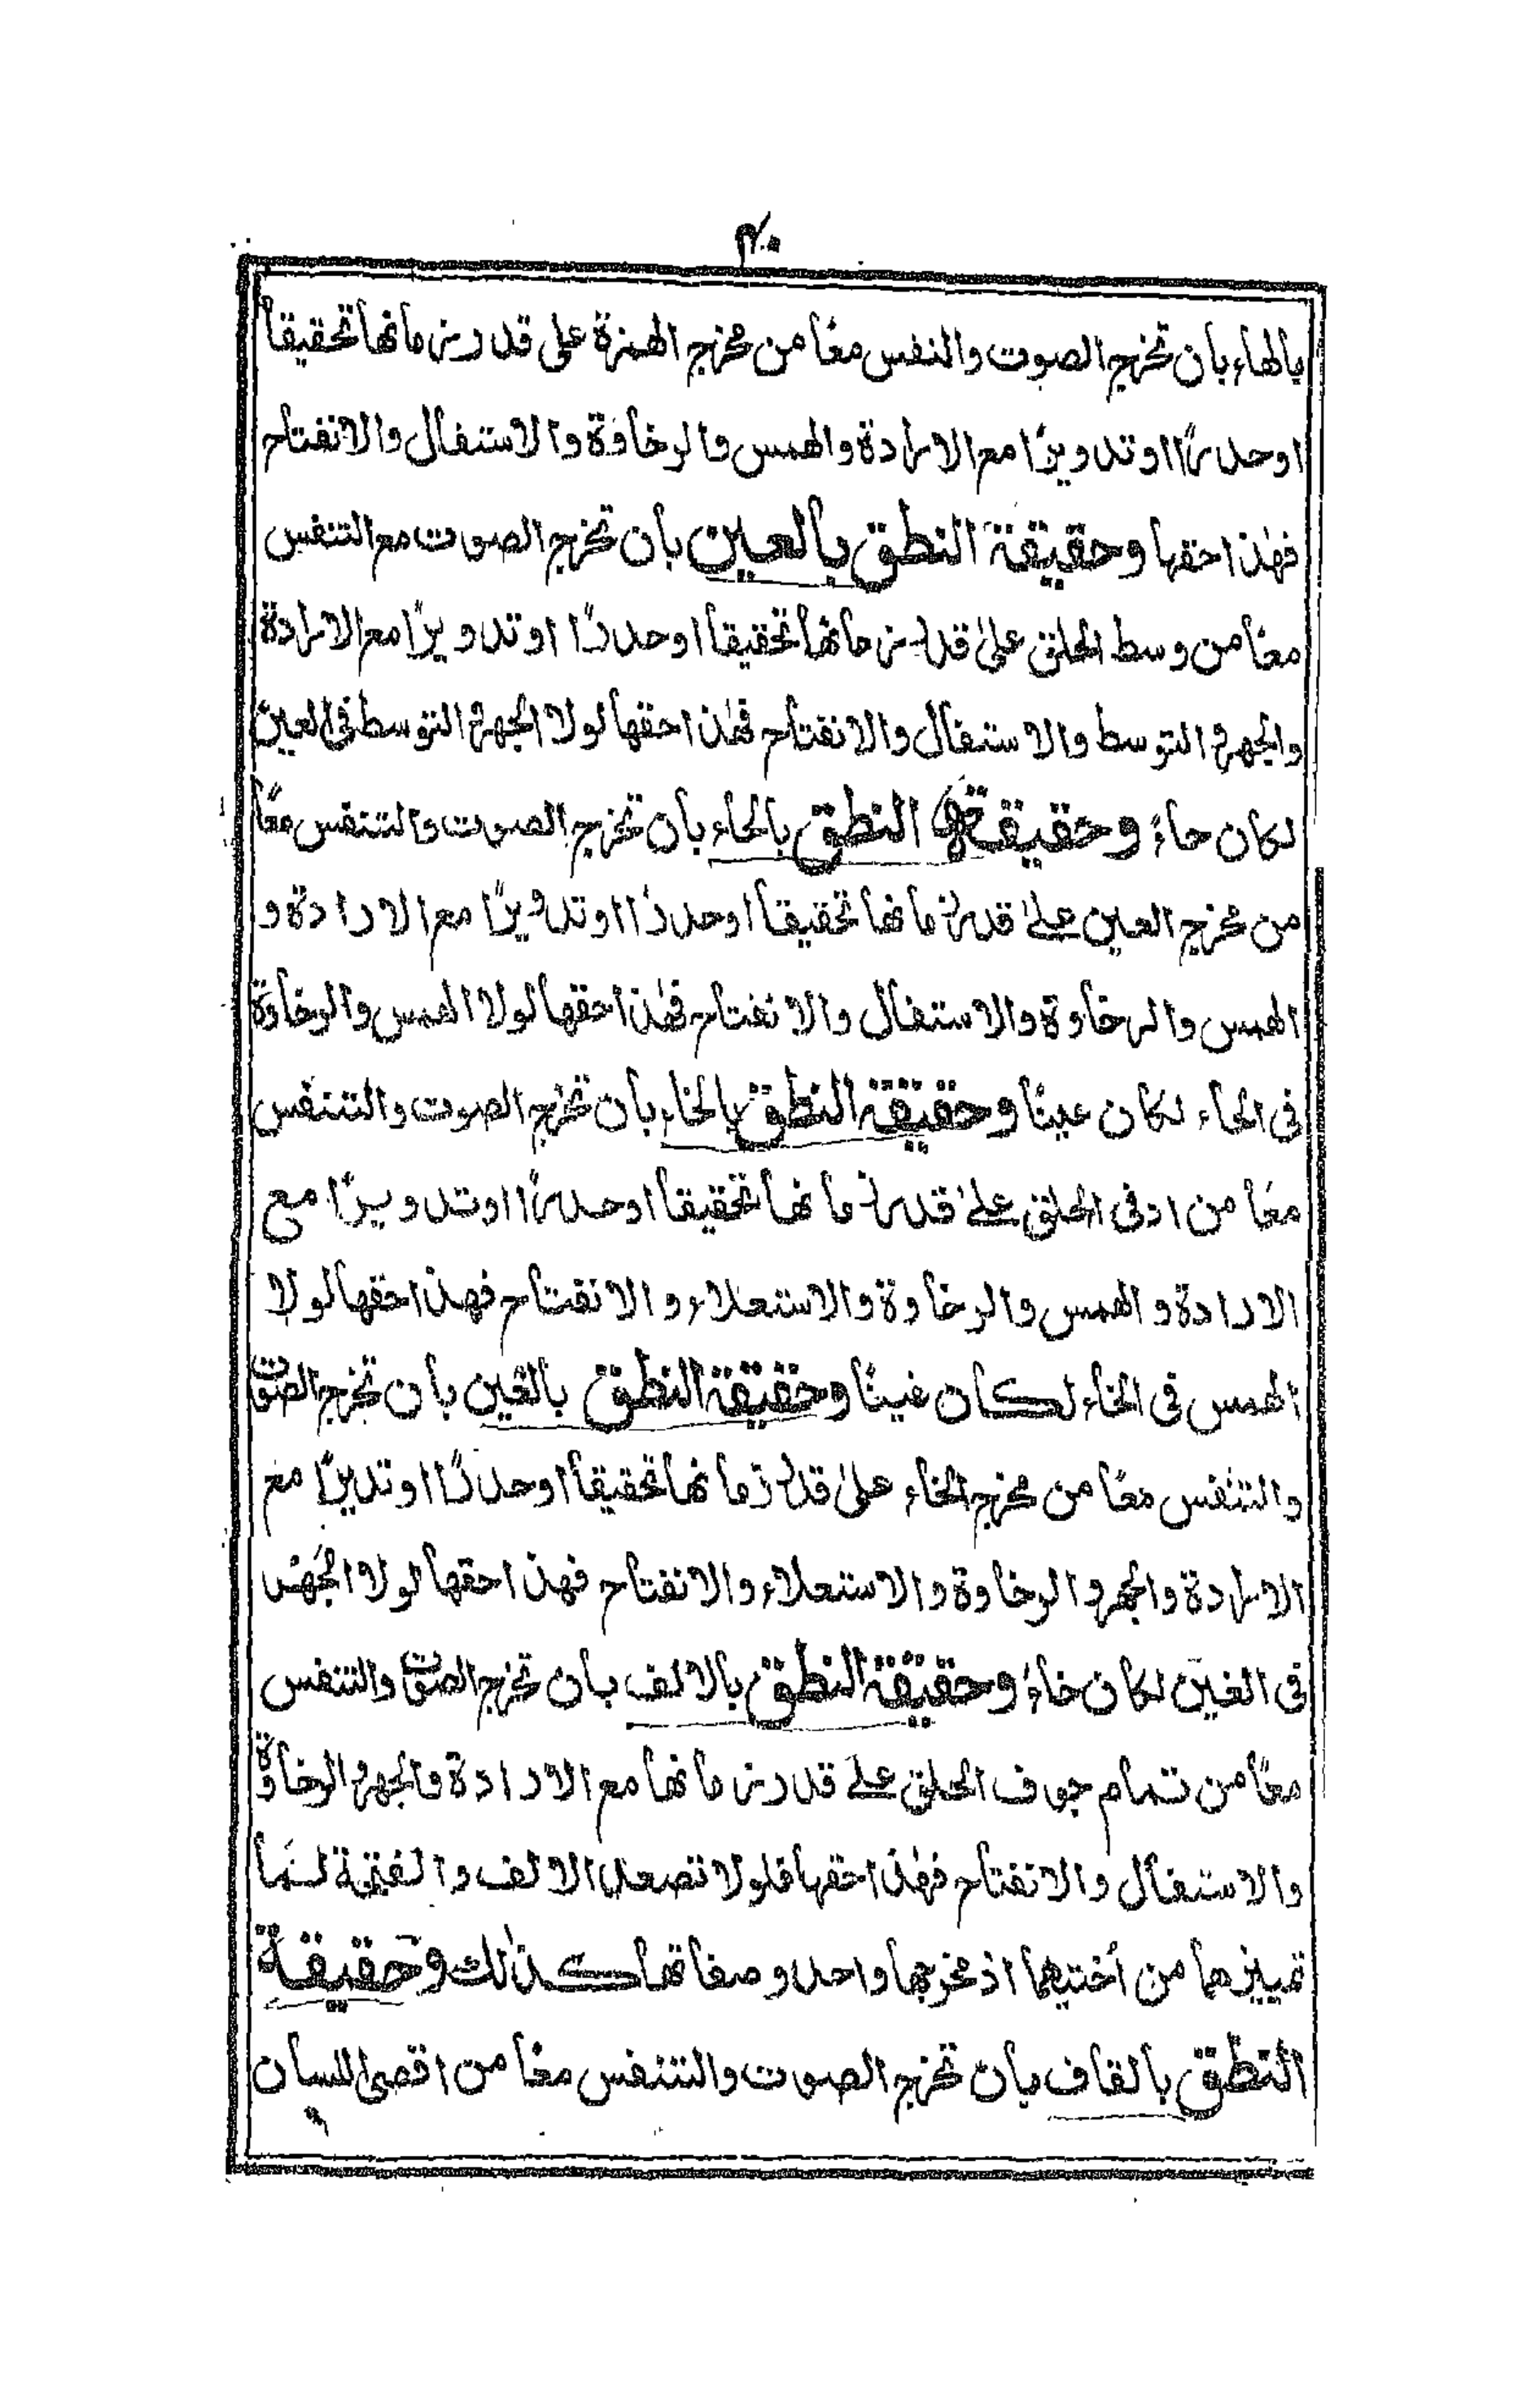 ٣٠
بالهاء بان تخرج الصوت والنفس معًا من مخرج الهمزة على قدر زمانها تحقيقا
او حدرًا او تدويرًا مع الارادة والهمس والرخاوة والاستفال والانفتاح
فهٰذا حقها وحقيقة النطق بالعين بان تخرج الصوت مع التنفس
معًا من وسط الحلق علىٰ قدر زمانها تحقيقا او حدرًا او تدويرًا مع الارادة
والجهر والتوسط والاستفال والانفتاح فهٰذا حقها لولا الجهر والتوسط فى العين
لكان حاءً وحقيقة النطق بالحاء بان تخرج الصوت والتنفس معًا
من مخرج العين علىٰ قدر زمانها تحقيقا او حدرًا او تدويرًا مع الارادة و
الهمس والرخاوة والاستفال والانفتاح فهٰذا حقها لولا الهمس والرخاوة
فى الحاء لكان عينًا وحقيقة النطق بالخاء بان تخرج الصوت والتنفس
معًا من ادنى الحلق علىٰ قدر زمانها تحقيقا او حدرًا او تدويرًا مع
الارادة والهمس والرخاوة والاستعلاء والانفتاح فهذا حقها لولا
الهمس فى الخاء لكان غينًا وحقيقة النطق بالغين بان تخرج الصوت
والتنفس معًا من مخرج الخاء علىٰ قدر زمانها تحقيقا او حدرًا او تديرًا مع
الارادة والجهر والرخاوة والاستعلاء والانفتاح فهذا حقها لولا الجهر
فى الغين لكان خاءً وحقيقة النطق بالالف بان تخرج الصوت والتنفس
معًا من تمام جوف الحلق على قدر زمانها مع الارادة والجهر والرخاوة
والاستفال والانفتاح فهٰذا حقها فلولا تصعد الالف والفتحة لما
تميزهما من أختيهما اذ مخرجها واحد وصفاتها كذٰلك وحقيقة
النطق بالقاف بان تخرج الصوت والتنفس معًا من اقصى اللسان